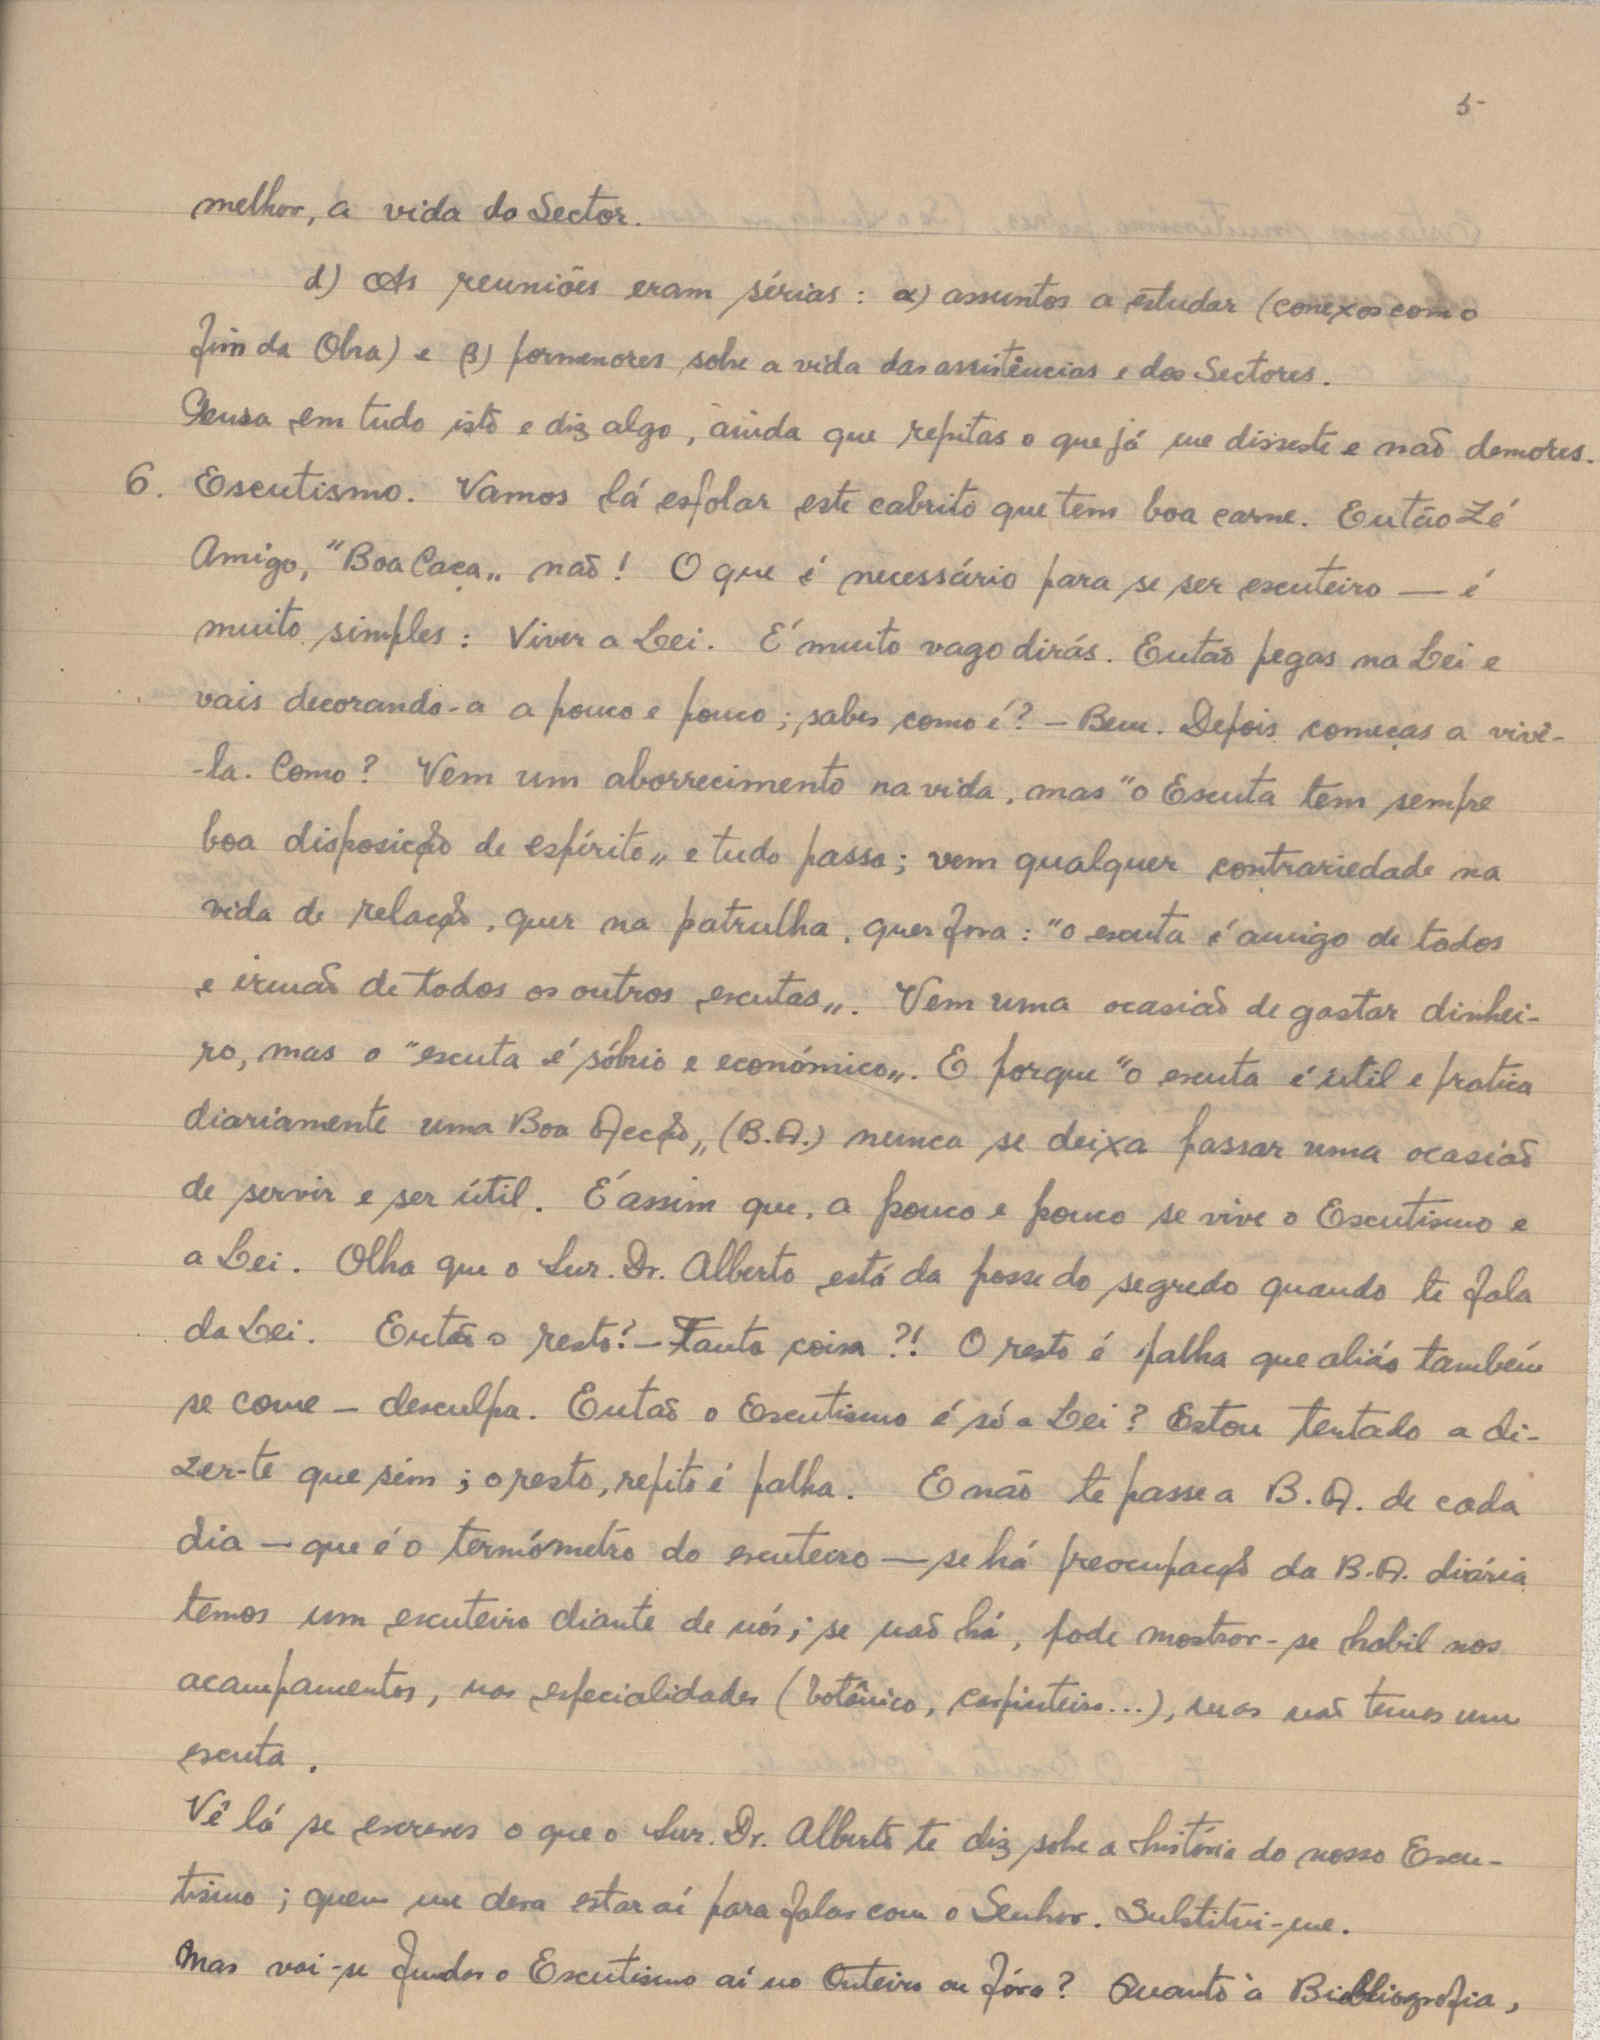 5-
melhor, a vida do Sector.
d) As reuniões eram sérias: α) assuntos a estudar (conexos com o
fim da Obra) e β) pormenores sobre a vida das assistências e dos Sectores.
Pensa em tudo isto e diz algo, ainda que repitas o que já me disseste e não demores.
6. Escutismo. Vamos lá esfolar este cabrito que tem boa carne. Então Zé
Amigo, "Boa Caça„ não! O que é necessário para se ser escuteiro — é
muito simples: Viver a Lei. É muito vago dirás. Então pegas na Lei e
vais decorando-a a pouco e pouco; sabes como é? — Bem. Depois começas a vivê-
-la. Como? Vem um aborrecimento na vida, mas "o Escuta tem sempre
boa disposição de espírito„ e tudo passa; vem qualquer contrariedade na
vida de relação, quer na patrulha, quer fora: "o escuta é amigo de todos
e irmão de todos os outros escutas„. Vem uma ocasião de gastar dinhei-
ro, mas o "escuta é sóbrio e económico„. E porque "o escuta é útil e pratica
diariamente uma Boa Acção„ (B.A.) nunca se deixa passar uma ocasião
de servir e ser útil. É assim que, a pouco e pouco se vive o Escutismo e
a Lei. Olha que o Snr. Dr. Alberto está da posse do segredo quando te fala
da Lei. Então o resto? — Tanta coisa?! O resto é palha que aliás também
se come — desculpa. Então o Escutismo é só a Lei? Estou tentado a di-
zer-te que sim; o resto, repito é palha. E não te passe a B.A. de cada
dia — que é o termómetro do escuteiro — se há preocupação da B.A. diária
temos um escuteiro diante de nós; se não há, pode mostrar-se habil nos
acampamentos, nas especialidades (botânico, carpinteiro...), mas não temos um
escuta.
Vê lá se escreves o que o Snr. Dr. Alberto te diz sobre a história do nosso Escu-
tismo; quem me dera estar aí para falar com o Senhor. Substitui-me.
Mas vai-se fundar o Escutismo aí no Outeiro ou fóra? Quanto à Bibliografia,